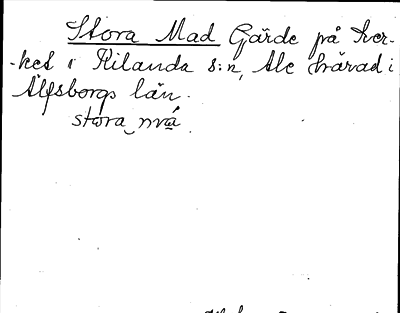 Stora Mad Gärde på Sver-
-ket i Kilanda s:n, Ale härad i
Älfsborgs län.
stora má